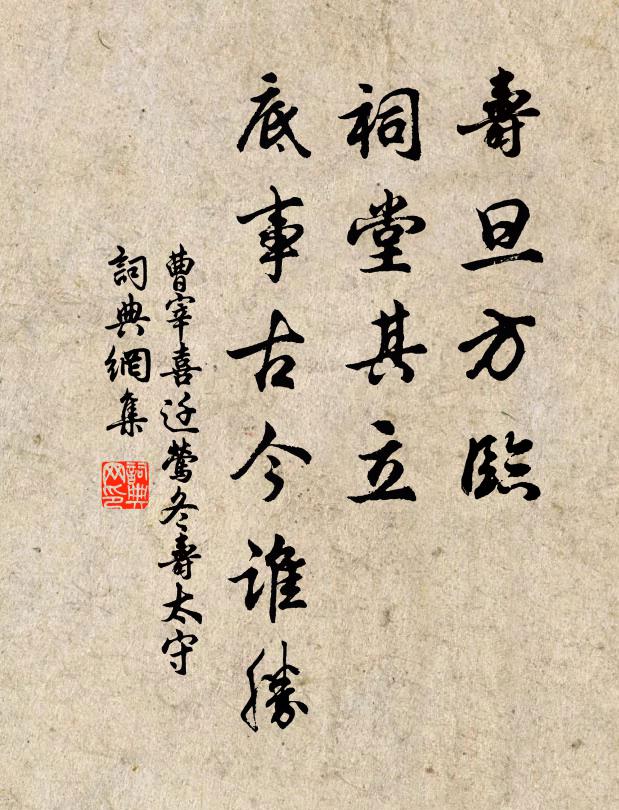 壽旦方臨
祠堂其立
底事古今誰勝
曹宰喜迁鶯冬壽太守
詞典網集
詞典網印